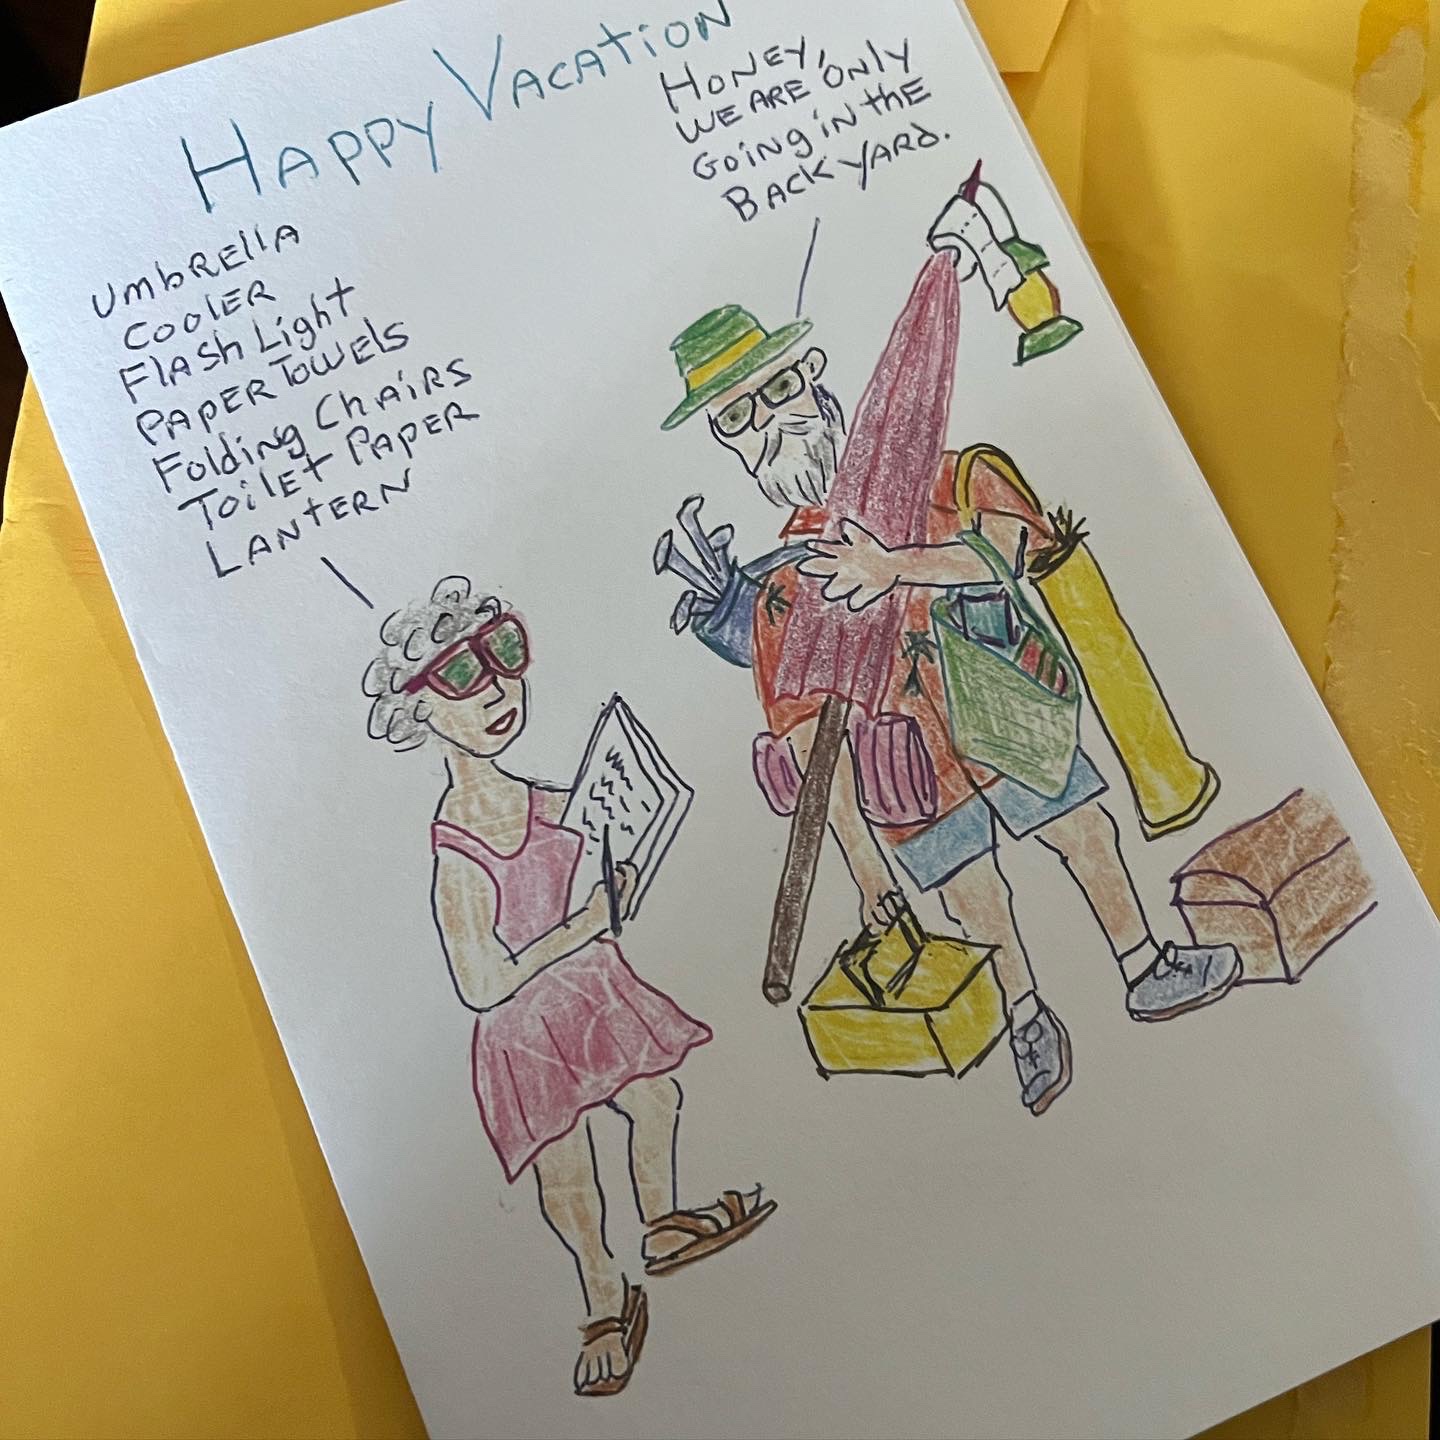 Happy Vacation
Honey,
we are only
Going in the
Back yard.
Umbrella
Cooler
Flash Light
Paper Towels
Folding Chairs
Toilet Paper
Lantern